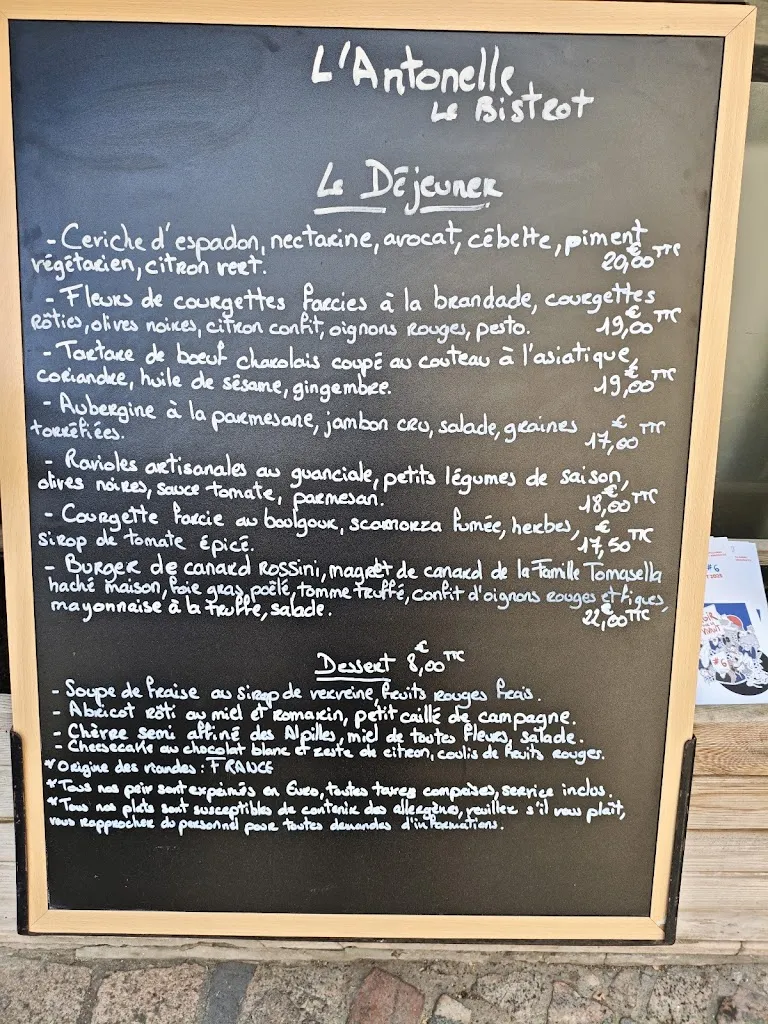 L'Antonelle
Le Bistrot
Le Déjeuner
- Ceviche d'espadon, nectarine, avocat, cébette, piment
végétarien, citron vert. 20,00 € TTC
- Fleurs de courgettes farcies à la brandade, courgettes
rôties, olives noires, citron confit, oignons rouges, pesto. 19,00 € TTC
- Tartare de boeuf charolais coupé au couteau à l'asiatique,
coriandre, huile de sésame, gingembre. 19,00 € TTC
- Aubergine à la parmesane, jambon cru, salade, graines
torréfiées. 17,00 € TTC
- Ravioles artisanales au guanciale, petits légumes de saison,
olives noires, sauce tomate, parmesan. 18,00 € TTC
- Courgette farcie au boulgour, scamorza fumée, herbes,
sirop de tomate épicé. 17,50 € TTC
- Burger de canard Rossini, magret de canard de la Famille Tomasella
haché maison, foie gras poêlé, tomme truffé, confit d'oignons rouges et figues,
mayonnaise à la truffe, salade. 22,00 € TTC
Dessert 8,00 € TTC
- Soupe de fraise au sirop de verveine, fruits rouges frais.
- Abricot rôti au miel et romarin, petit caillé de campagne.
- Chèvre semi affiné des Alpilles, miel de toutes fleurs, salade.
- Cheesecake au chocolat blanc et zeste de citron, coulis de fruits rouges.
* Origine des viandes : FRANCE
* Tous nos prix sont exprimés en Euro, toutes taxes comprises, service inclus.
* Tous nos plats sont susceptibles de contenir des allergènes, veuillez s'il vous plaît,
vous rapprocher du personnel pour toutes demandes d'informations.
#6
#6